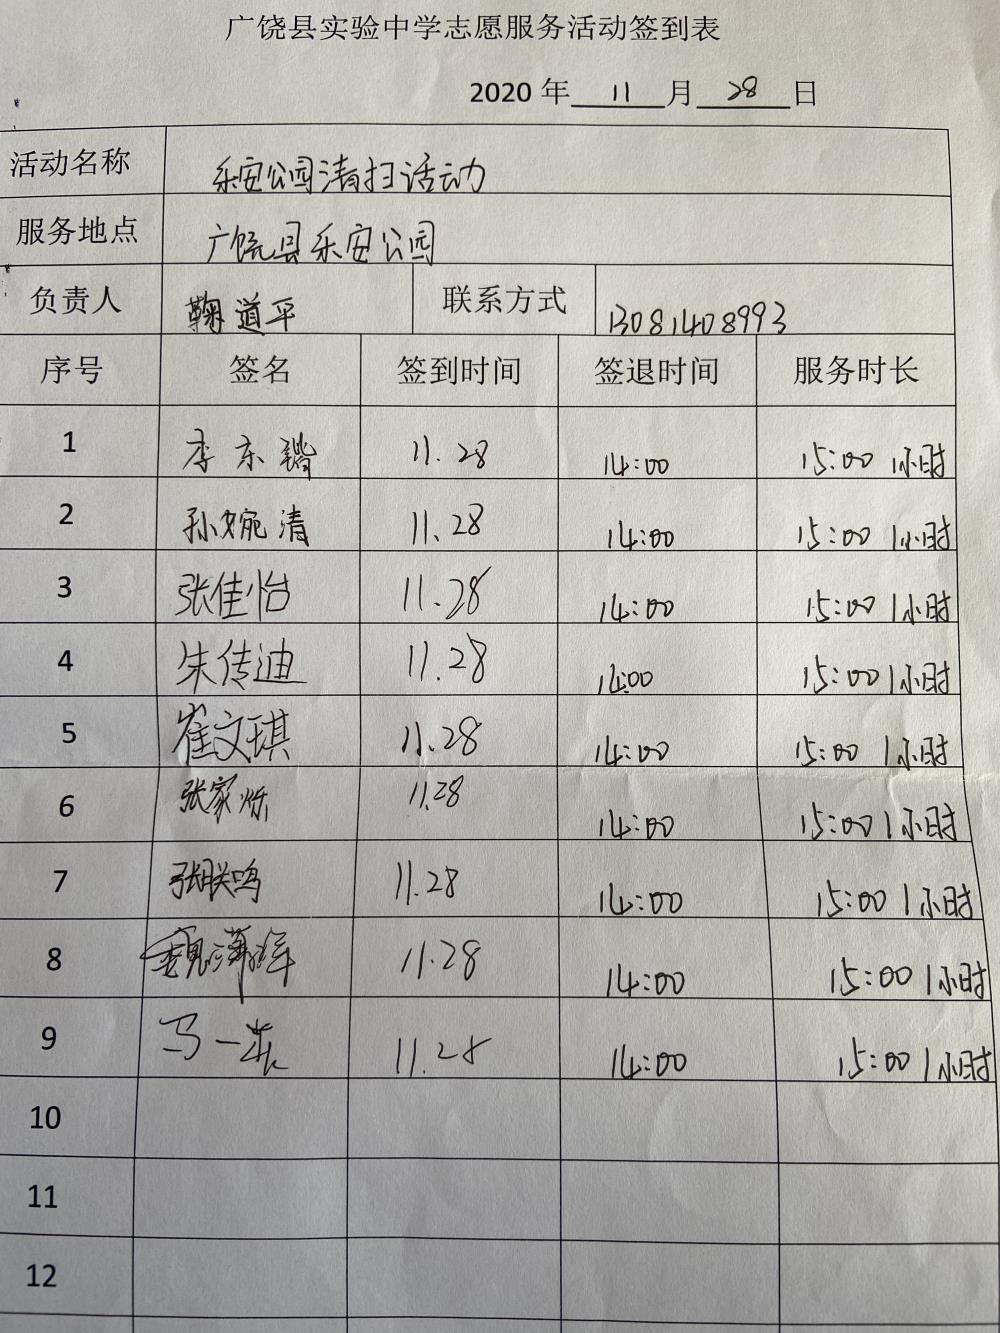 广饶县实验中学志愿服务活动签到表
2020 年 11 月 28 日
活动名称 乐安公园清扫活动
服务地点 广饶县乐安公园
负责人 鞠道平 联系方式 13081408993
序号 签名 签到时间 签退时间 服务时长
1 李东锴 11.28 14:00 15:00 1小时
2 孙婉清 11.28 14:00 15:00 1小时
3 张佳怡 11.28 14:00 15:00 1小时
4 朱传迪 11.28 14:00 15:00 1小时
5 崔文琪 11.28 14:00 15:00 1小时
6 张家烁 11.28 14:00 15:00 1小时
7 张朕鸣 11.28 14:00 15:00 1小时
8 魏 11.28 14:00 15:00 1小时
9 马一 11.28 14:00 15:00 1小时
10
11
12